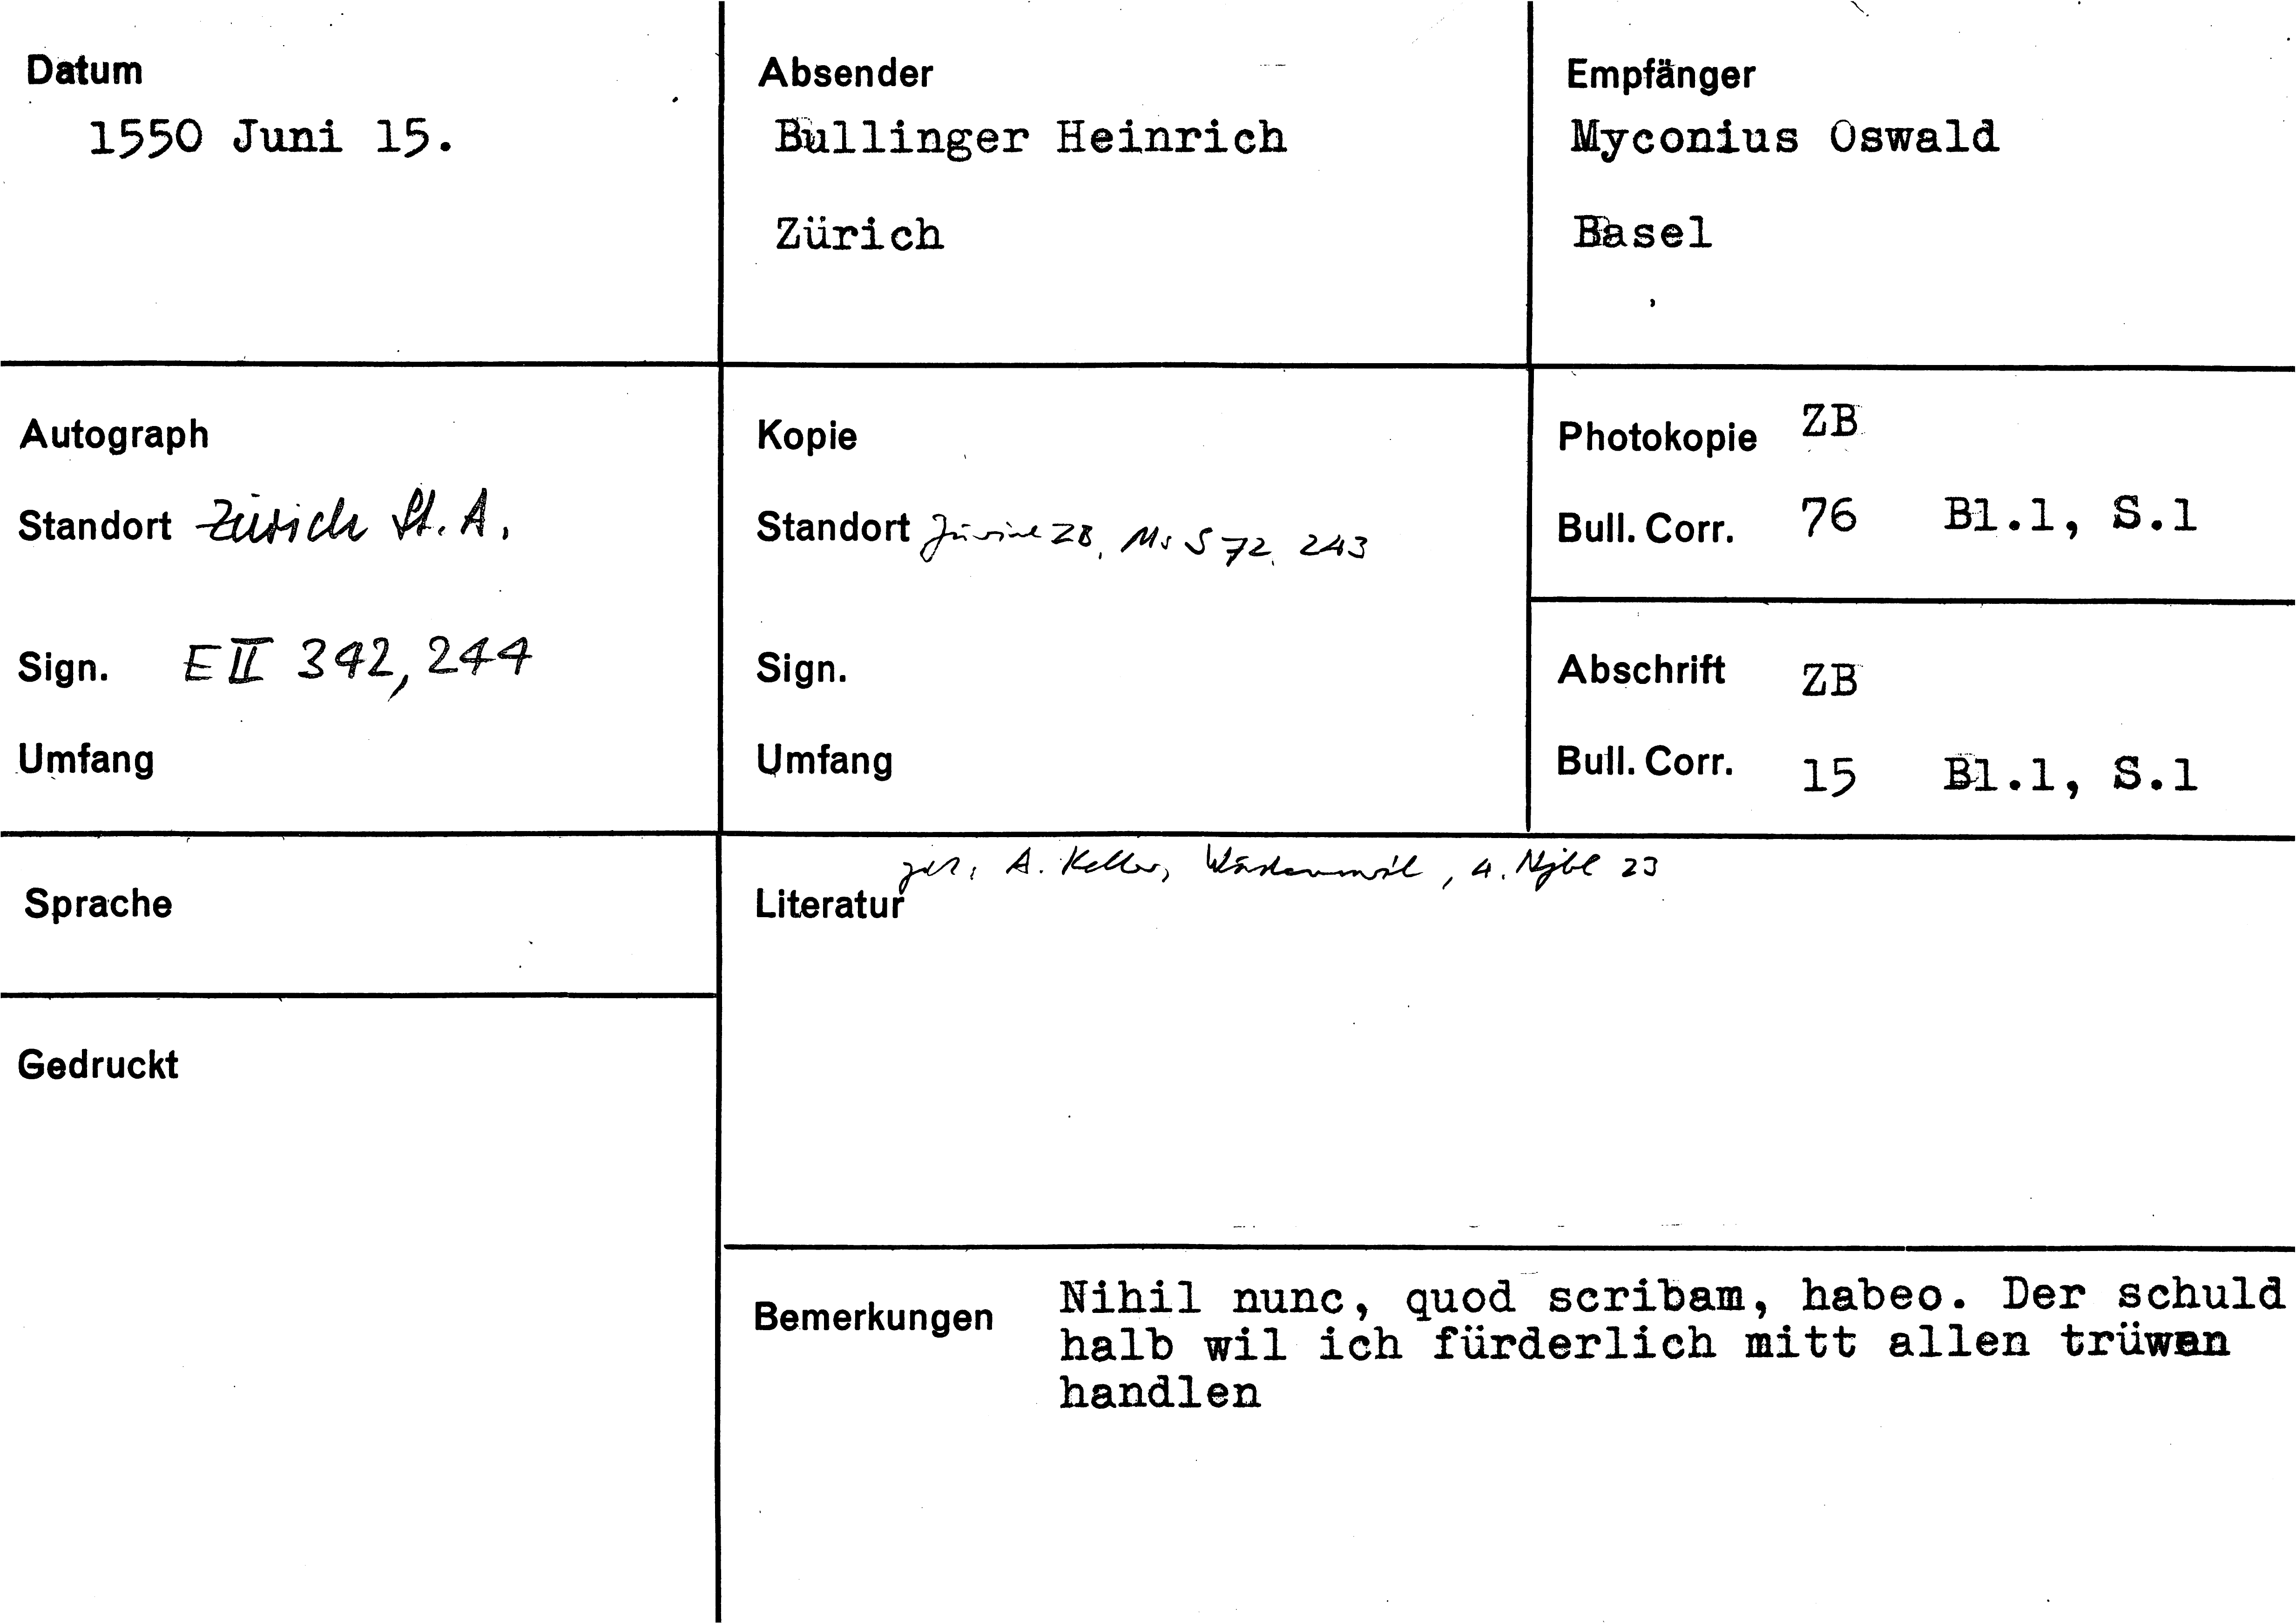 Datum
1550 Juni 15.
Absender
Bullinger Heinrich
Zürich
Empfänger
Myconius Oswald
Basel
Autograph
Standort Zürich St. A.
Sign. E II 342, 244
Umfang
Kopie
Standort Zürich ZB, Ms S 72, 243
Sign.
Umfang
Photokopie ZB
Bull. Corr. 76 Bl.1, S.1
Abschrift ZB
Bull. Corr. 15 Bl.1, S.1
Sprache
Gedruckt
A. Keller, 4. Njbl 23
Literatur
Bemerkungen Nihil nunc, quod scribam, habeo. Der schuld
halb wil ich fürderlich mitt allen trüwen
handlen